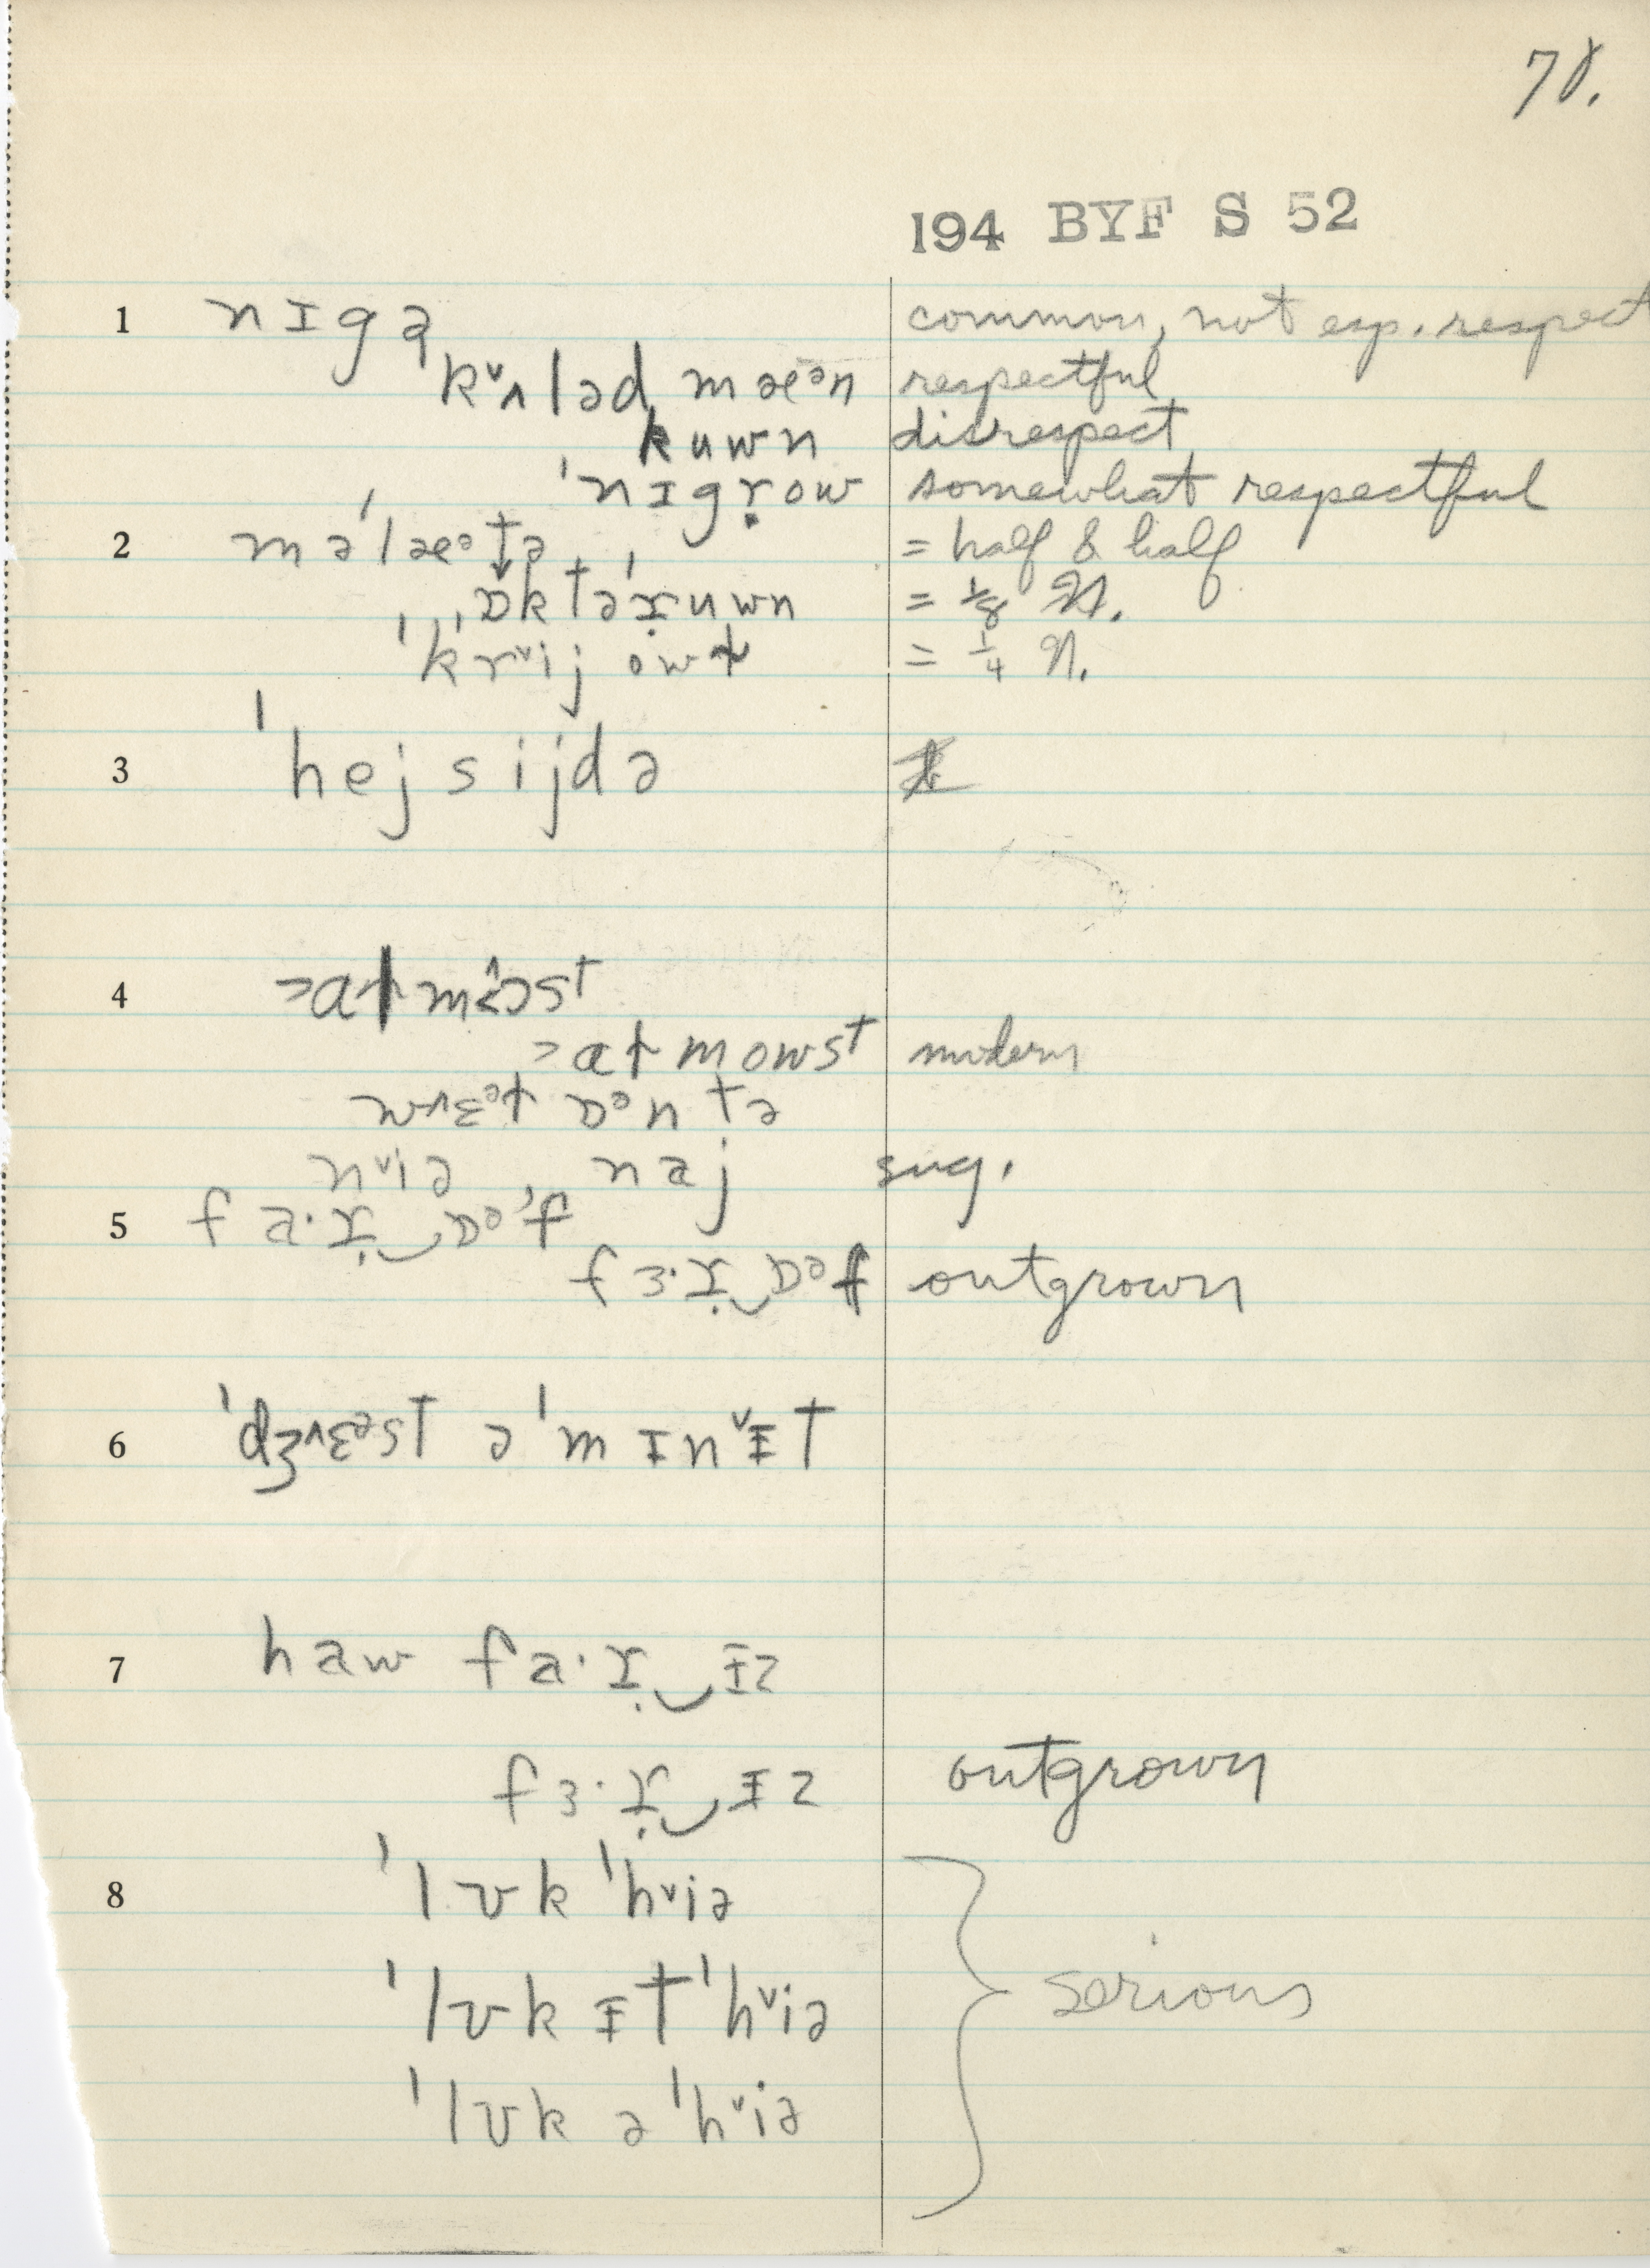 78.
194 BYF S 52
1 nɪgə common, not esp. respect
kᵛʌləd mæᵊn respectful
kuwn disrespect
ˈnɪgṛow somewhat respectful
2 məˈlæᵊtə = half & half
ˌɒktəˈṛuwn = 1/8 N.
ˈkrᵛijowɫ = 1/4 N.
3 ˈhejsijdə
4
ɔaɫmowst modern
w^ɛᵊɫ ɒᵊn tə
nᵛiə naj sug.
5 fa·ṛ‿ɒᵊf
fɜ·ṛ‿ɒᵊf outgrown
6 ˈdʒ^ɛᵊst əˈmɪnᵛɨt
7 haw fa·ṛ‿ɪz
fɜ·ṛ‿ɨz outgrown
8 ˈlʊk ˈhᵛiə
ˈlʊk ɨt ˈhᵛiə serious
ˈlʊk ə ˈhᵛiə